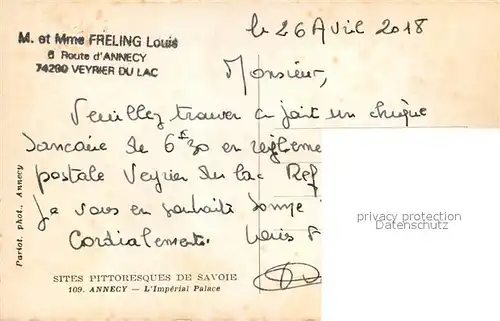 le 26 Avril 2018
M. et Mme FRELING Louis
6 Route d'ANNECY
74290 VEYRIER DU LAC
Monsieur,
Veuillez trouver ci joint un chèque
bancaire de 6€30 en règleme
postale Veyrier du lac Ref
Je vous en souhaite bonne
Cordialement. Louis F
Pariot, phot. Annecy
privacy protection
Datenschutz
SITES PITTORESQUES DE SAVOIE
109. ANNECY — L'Impérial Palace